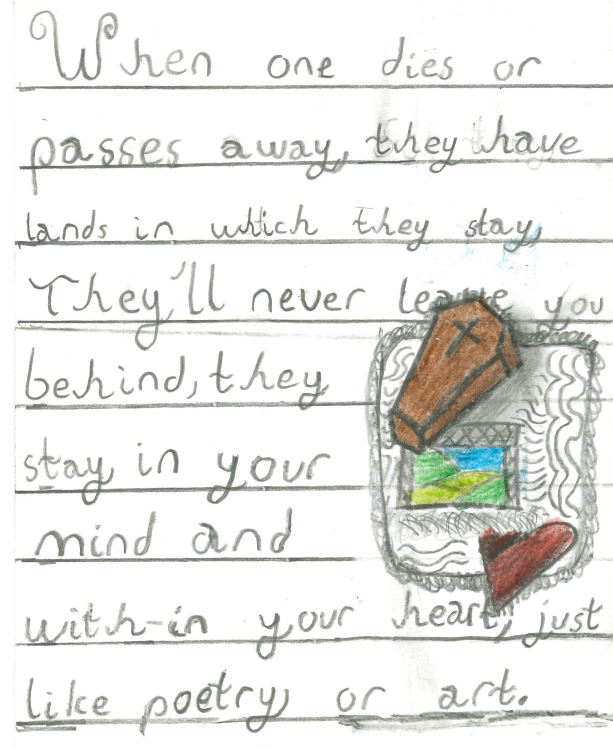 When one dies or
passes away, they have
lands in which they stay,
They'll never leave you
behind, they
stay in your
mind and
with-in your heart, just
like poetry, or art.